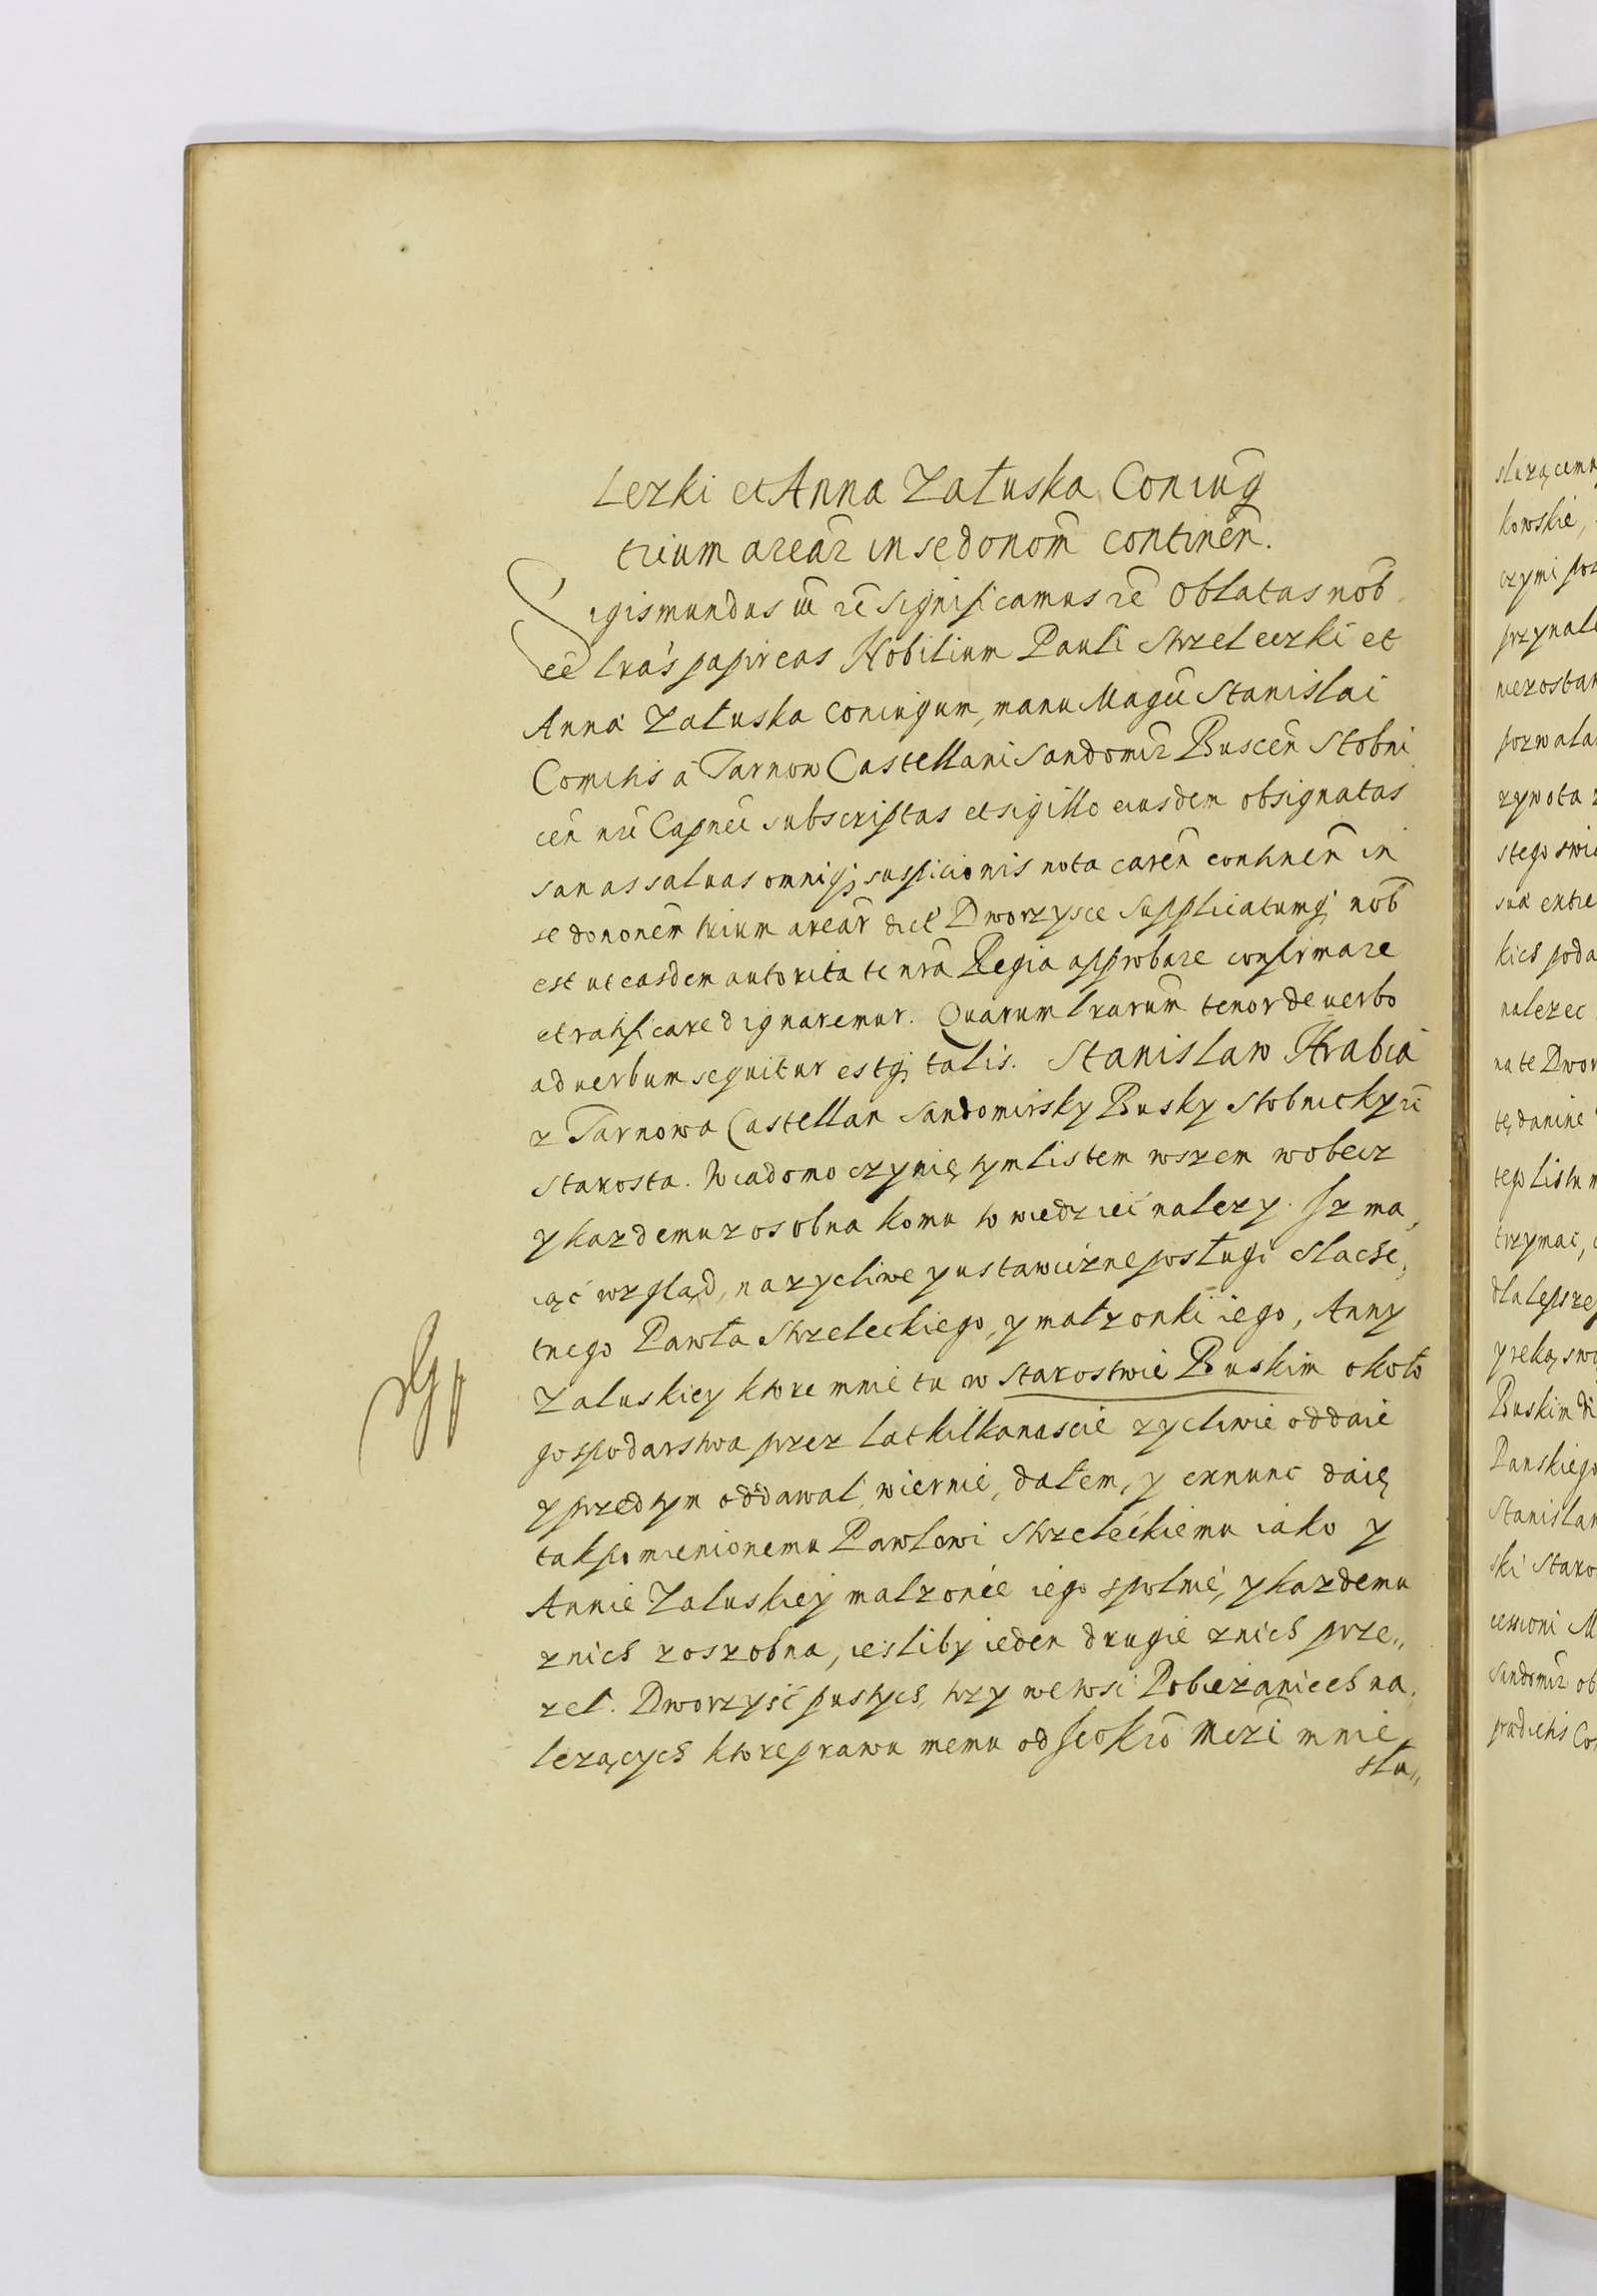 lezki et Anna Załuska Coniug
trium arear in se donom continen.
Sigismundus III rē Significamus rē Oblatas nob
eē lras papireas Nobilium Pauli Strzeleczki et
Anna Załuska coniugum, manu Magci Stanislai
Comitis a Tarnow Castellani Sandomir Buscen Stobni
cen nri Capnei subscriptas et sigillo eiusdem obsignatas
sanas saluas omniq suspicionis nota caren continen in
se dononem trium arear dict Dworzysce Supplicatumq nob
est ut easdem autoritate nra Regia approbare confirmare
et ratificare dignaremur. Quarum lrarum tenor de uerbo
ad uerbum sequitur estq talis. Stanislaw Hrabia
z Tarnowa Castellan Sandomirsky Busky Stobnicky rē
Starosta. Wiadomo czynię tym listem wszem wobecz
y kazdemu z osobna komu to wiedziec nalezy. Iz ma,
iąc wzgląd, na zycliwe y ustawiczne posługi slache,
tnego Pawła Strzeleckiego, y małzonki iego, Anny
Załuskiey ktore mnie tu w Starostwie Buskim około
gospodarstwa przez lat kilkanascie zycliwie oddaie
y przedtym oddawał, wiernie, dałem, y exnunc daię
tak pomienionemu Pawlowi Strzeleckiemu iako y
Annie Załuskiey malzonce iego społnie, y kazdemu
z nich z oszobna, iesliby ieden drugie z nich prze„
zeł. Dworzysc pustych, trzy we wsi Pobiezanicch na,
lezących ktore prawu memu od mnie
słu„